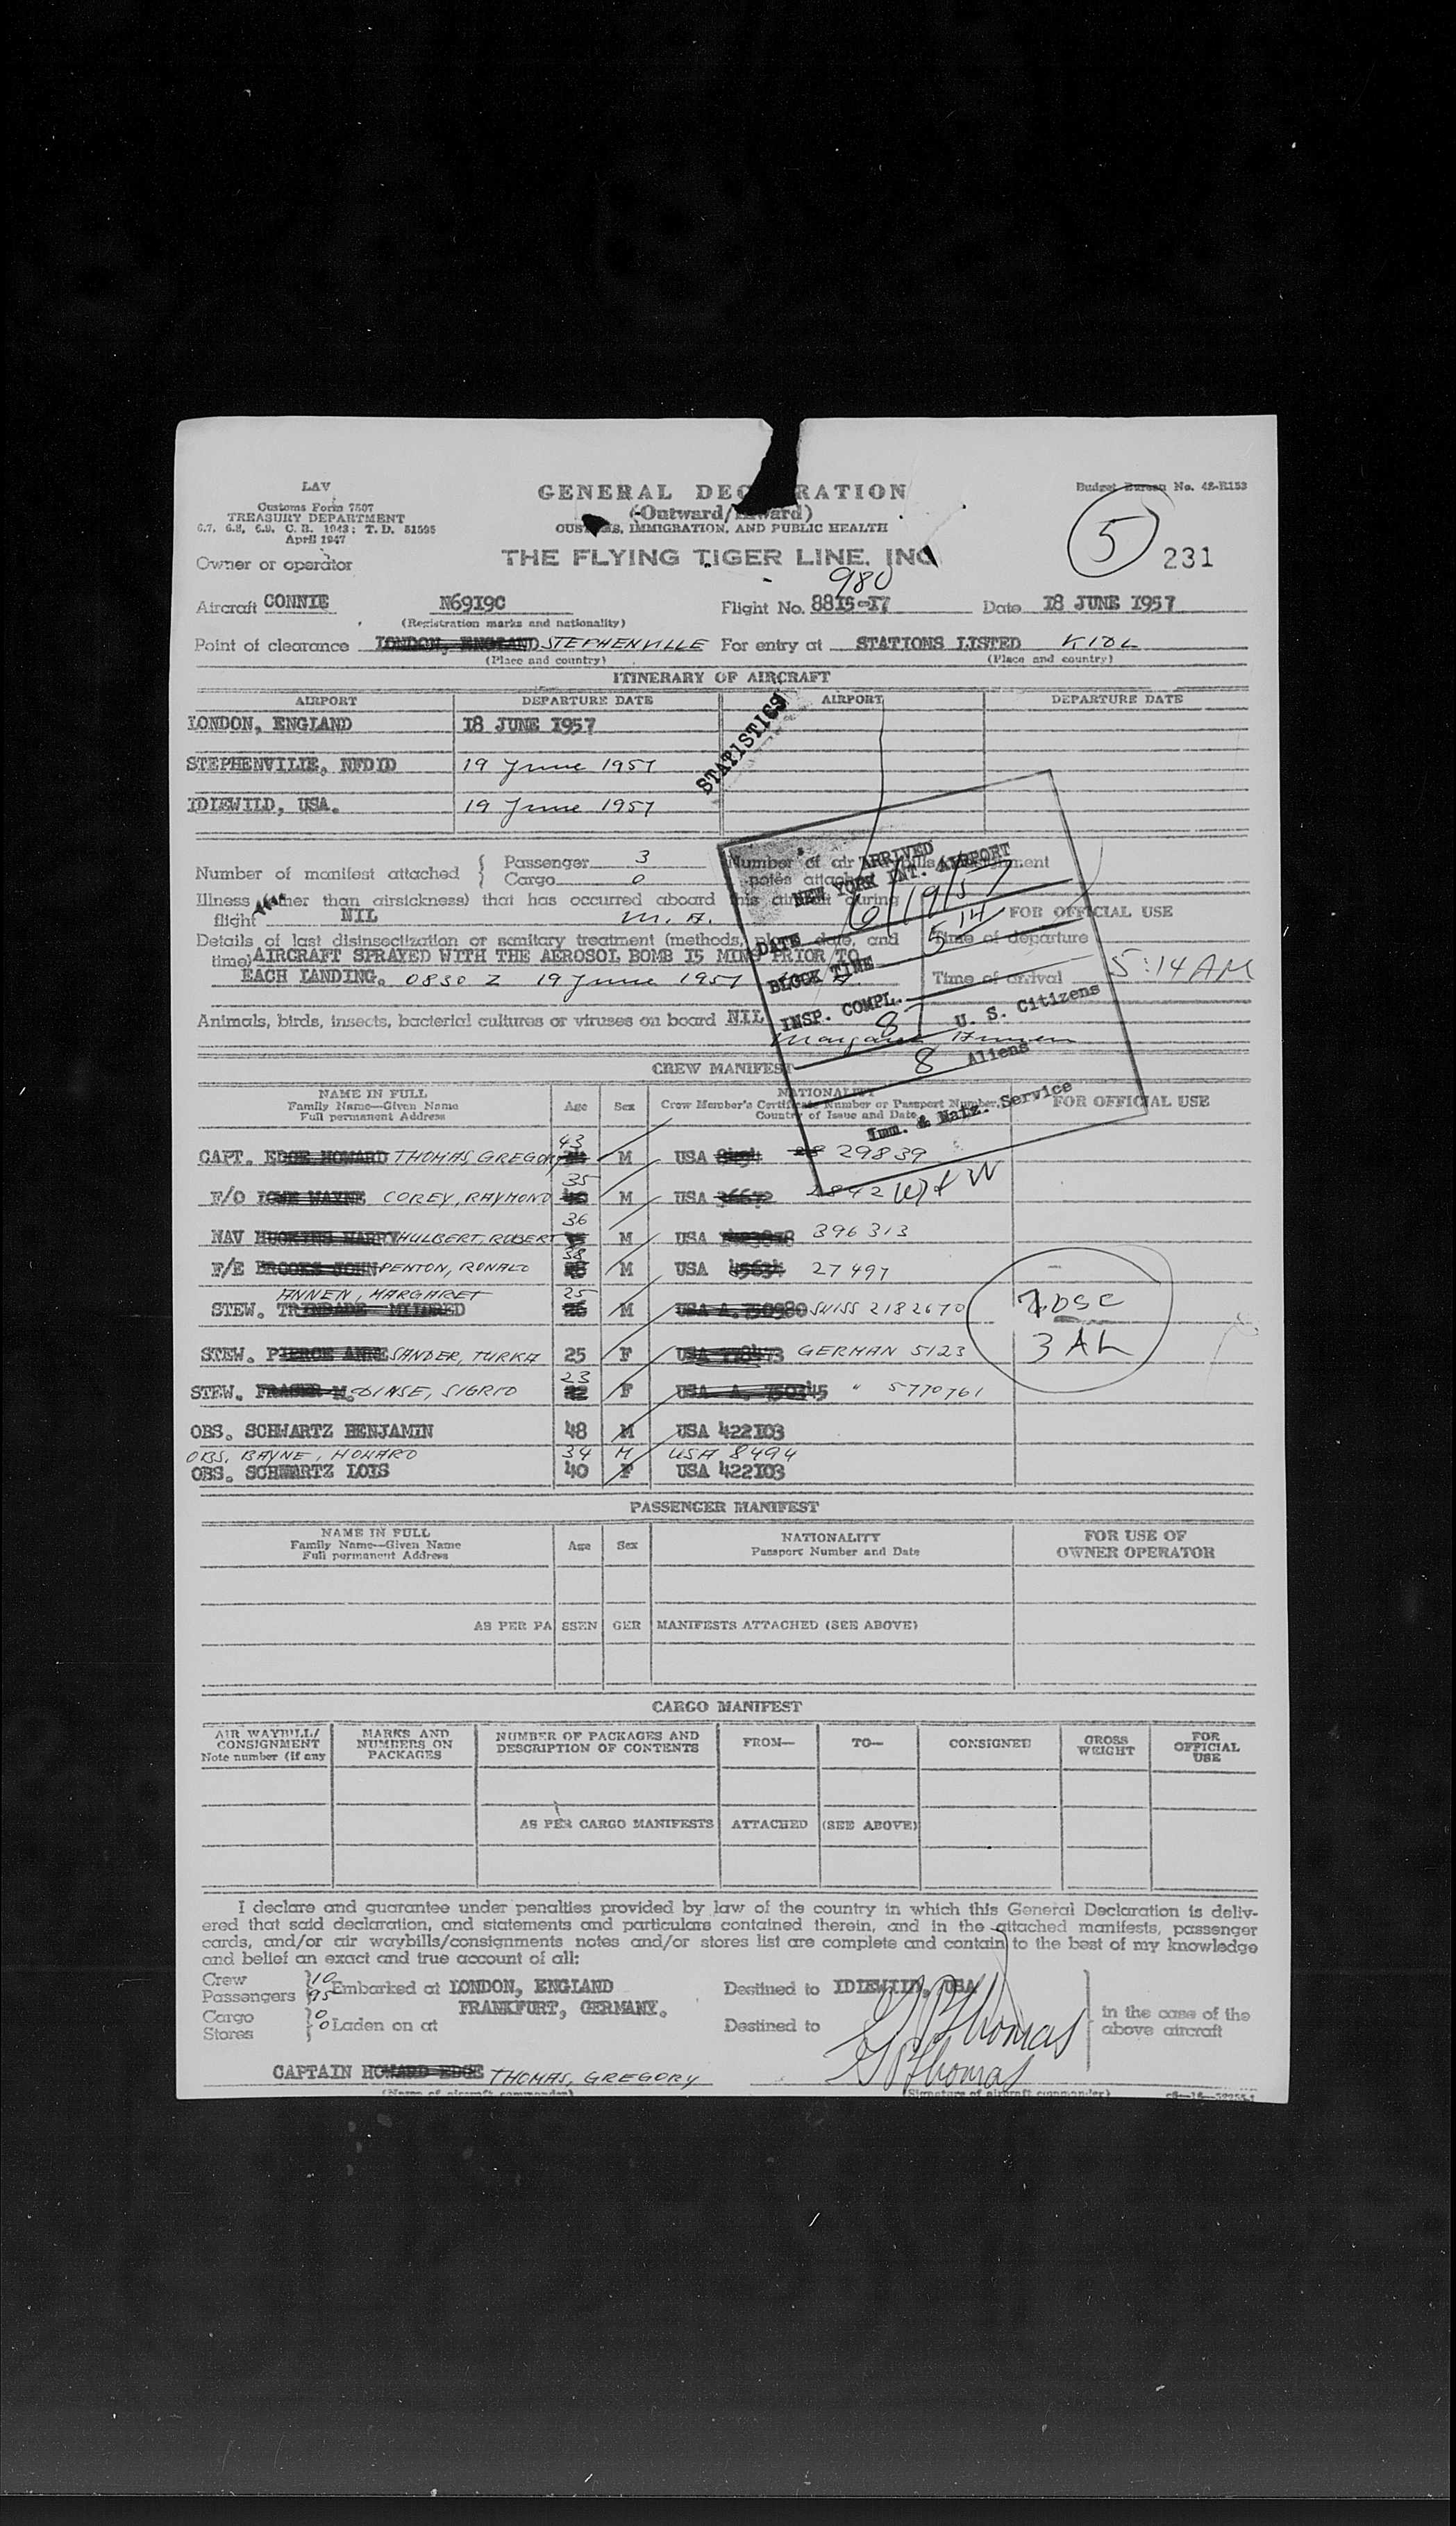 LAV
GENERAL DEC RATION
Budget Bureau No. 48-R153
Customs Form 7507
(Outward/Inward)
TREASURY DEPARTMENT
CUSTOMS, IMMIGRATION, AND PUBLIC HEALTH
6.7, 6.8, 6.9, C. R. 1943; T. D. 51595
April 1947
5
231
Owner or operator
THE FLYING TIGER LINE, INC
980
Aircraft CONNIE N6919C Flight No. 8815-17 Date 18 JUNE 1957
(Registration marks and nationality)
Point of clearance LONDON, ENGLAND STEPHENVILLE For entry at STATIONS LISTED KIDL
(Place and country) (Place and country)
ITINERARY OF AIRCRAFT
AIRPORT DEPARTURE DATE AIRPORT DEPARTURE DATE
LONDON, ENGLAND 18 JUNE 1957
STATISTICS
STEPHENVILLE, NFDLD 19 June 1957
IDLEWILD, USA. 19 June 1957
Number of manifest attached { Passenger 3
Cargo 0
Number of air waybills/consignment
notes attached
ARRIVED
NEW YORK INT. AIRPORT
DATE 6/19/57
BLOCK TIME 514
INSP. COMPL.
87 U. S. Citizens
8 Aliens
Imm. & Natz. Service
Illness (other than airsickness) that has occurred aboard this aircraft during
flight NIL M. A.
FOR OFFICIAL USE
Details of last disinsectization or sanitary treatment (methods, place, date, and
time) AIRCRAFT SPRAYED WITH THE AEROSOL BOMB 15 MINS PRIOR TO
EACH LANDING. 0830 Z 19 June 1957
Time of departure
Time of arrival 5:14 AM
Animals, birds, insects, bacterial cultures or viruses on board NIL
CREW MANIFEST
NAME IN FULL
Family Name—Given Name
Full permanent Address
Age Sex
NATIONALITY
Crew Member's Certificate Number or Passport Number,
Country of Issue and Date
FOR OFFICIAL USE
CAPT. EDGE HOWARD THOMAS, GREGORY 43 M USA 8494 29839
F/O LOWE WAYNE COREY, RAYMOND 35 M USA 36672
NAV HULBERT, ROBERT 36 M USA 396313
F/E BROOKS JOHN PENTON, RONALD 38 M USA 45634 27497
ANNEN, MARGARET 25
STEW. TRINDADE MILDRED 26 M USA A.750980 SWISS 2182670
3 AL
STEW. PIERCE ANNE SANDER, TURKA 25 F USA GERMAN 5123
STEW. FRASER M. DINSE, SIGRID 23 F USA A. 750345 " 5770761
OBS. SCHWARTZ BENJAMIN 48 M USA 422103
OBS. BAYNE, HOWARD 34 M USA 8494
OBS. SCHWARTZ LOIS 40 F USA 422103
PASSENGER MANIFEST
NAME IN FULL
Family Name—Given Name
Full permanent Address
Age Sex
NATIONALITY
Passport Number and Date
FOR USE OF
OWNER OPERATOR
AS PER PASSENGER MANIFESTS ATTACHED (SEE ABOVE)
CARGO MANIFEST
AIR WAYBILL/
CONSIGNMENT
Note number (if any
MARKS AND
NUMBERS ON
PACKAGES
NUMBER OF PACKAGES AND
DESCRIPTION OF CONTENTS
FROM— TO— CONSIGNEE
GROSS
WEIGHT
FOR
OFFICIAL
USE
AS PER CARGO MANIFESTS ATTACHED (SEE ABOVE)
I declare and guarantee under penalties provided by law of the country in which this General Declaration is deliv-
ered that said declaration, and statements and particulars contained therein, and in the attached manifests, passenger
cards, and/or air waybills/consignments notes and/or stores list are complete and contain to the best of my knowledge
and belief an exact and true account of all:
Crew 10
Passengers 95 Embarked at LONDON, ENGLAND Destined to IDLEWILD, USA
FRANKFURT, GERMANY.
Cargo 0
Stores 0 Laden on at Destined to
in the case of the
above aircraft
G P Thomas
G P Thomas
CAPTAIN HOWARD EDGE THOMAS, GREGORY
(Name of aircraft commander) (Signature of aircraft commander)